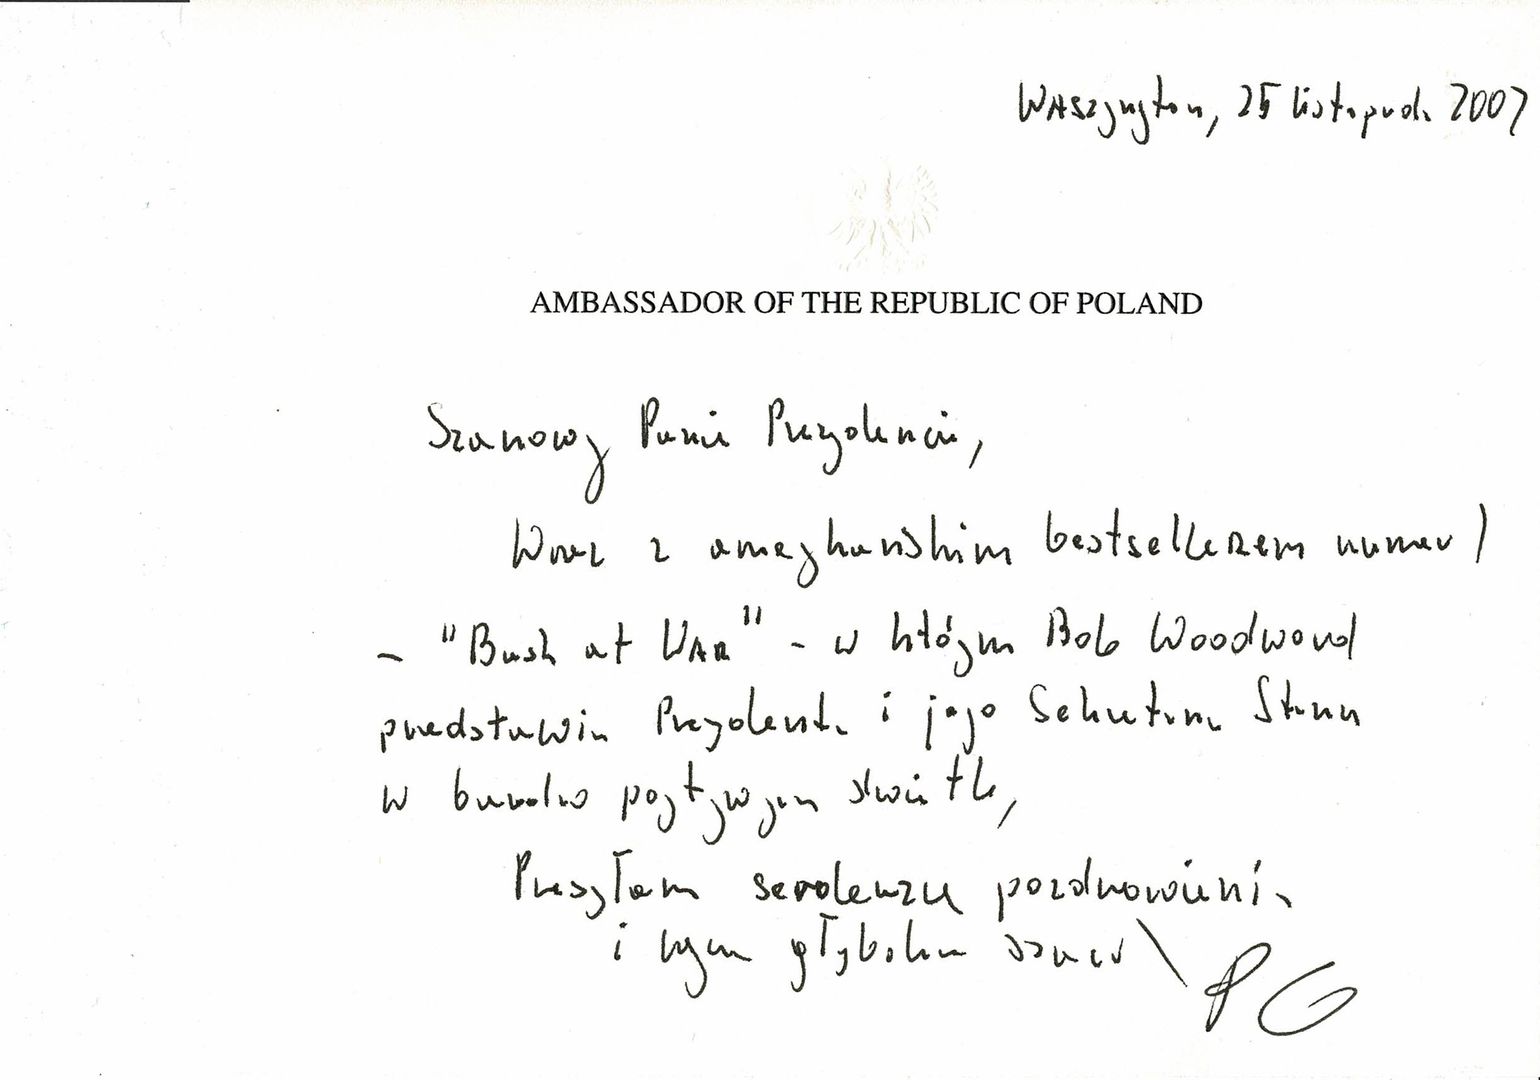 Waszyngton, 25 listopada 2002
AMBASSADOR OF THE REPUBLIC OF POLAND
Szanowny Panie Prezydencie,
Wraz z amerykańskim bestsellerem numer 1
- "Bush at War" - w którym Bob Woodward
przedstawia Prezydenta i jego Sekretarza Stanu
w bardzo pozytywnym świetle,
Przesyłam serdeczne pozdrowienia
i wyrazy głębokiego szacunku
PG